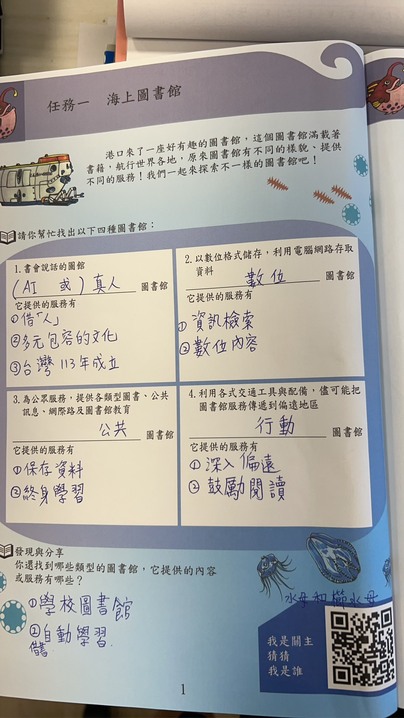 任務一 海上圖書館
港口來了一座好有趣的圖書館，這個圖書館滿載著
書籍，航行世界各地，原來圖書館有不同的樣貌、提供
不同的服務！我們一起來探索不一樣的圖書館吧！
請你幫忙找出以下四種圖書館：
1.書會說話的圖館
(AI 或)真人 圖書館
它提供的服務有
①借「人」
②多元包容的文化
③台灣113年成立
2.以數位格式儲存，利用電腦網路存取
資料
數位 圖書館
它提供的服務有
①資訊檢索
②數位內容
3.為公眾服務，提供各類型圖書、公共
訊息、網際路及圖書館教育
公共 圖書館
它提供的服務有
①保存資料
②終身學習
4.利用各式交通工具與配備，儘可能把
圖書館服務傳遞到偏遠地區
行動 圖書館
它提供的服務有
①深入偏遠
②鼓勵閱讀
發現與分享
你還找到哪些類型的圖書館，它提供的內容
或服務有哪些？
①學校圖書館
②自動學習
借書
水母和櫛水母
我是關主
猜猜
我是誰
1